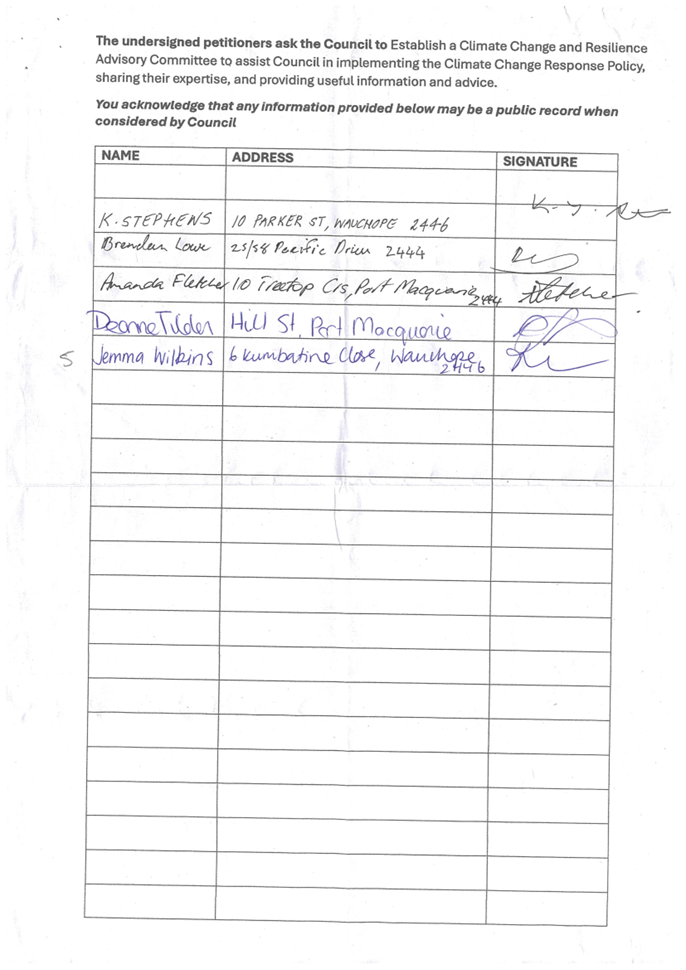 The undersigned petitioners ask the Council to Establish a Climate Change and Resilience
Advisory Committee to assist Council in implementing the Climate Change Response Policy,
sharing their expertise, and providing useful information and advice.
You acknowledge that any information provided below may be a public record when
considered by Council
NAME ADDRESS SIGNATURE
K. STEPHENS 10 PARKER ST, WAUCHOPE 2446
Brendan Lowe 25/58 Pacific Drive 2444
Amanda Fletcher 10 Treetop Crs, Port Macquarie 2444 Fletcher
Deanne Tilden Hill St, Port Macquarie
5 Jemma Wilkins 6 Kumbatine Close, Wauchope
2446